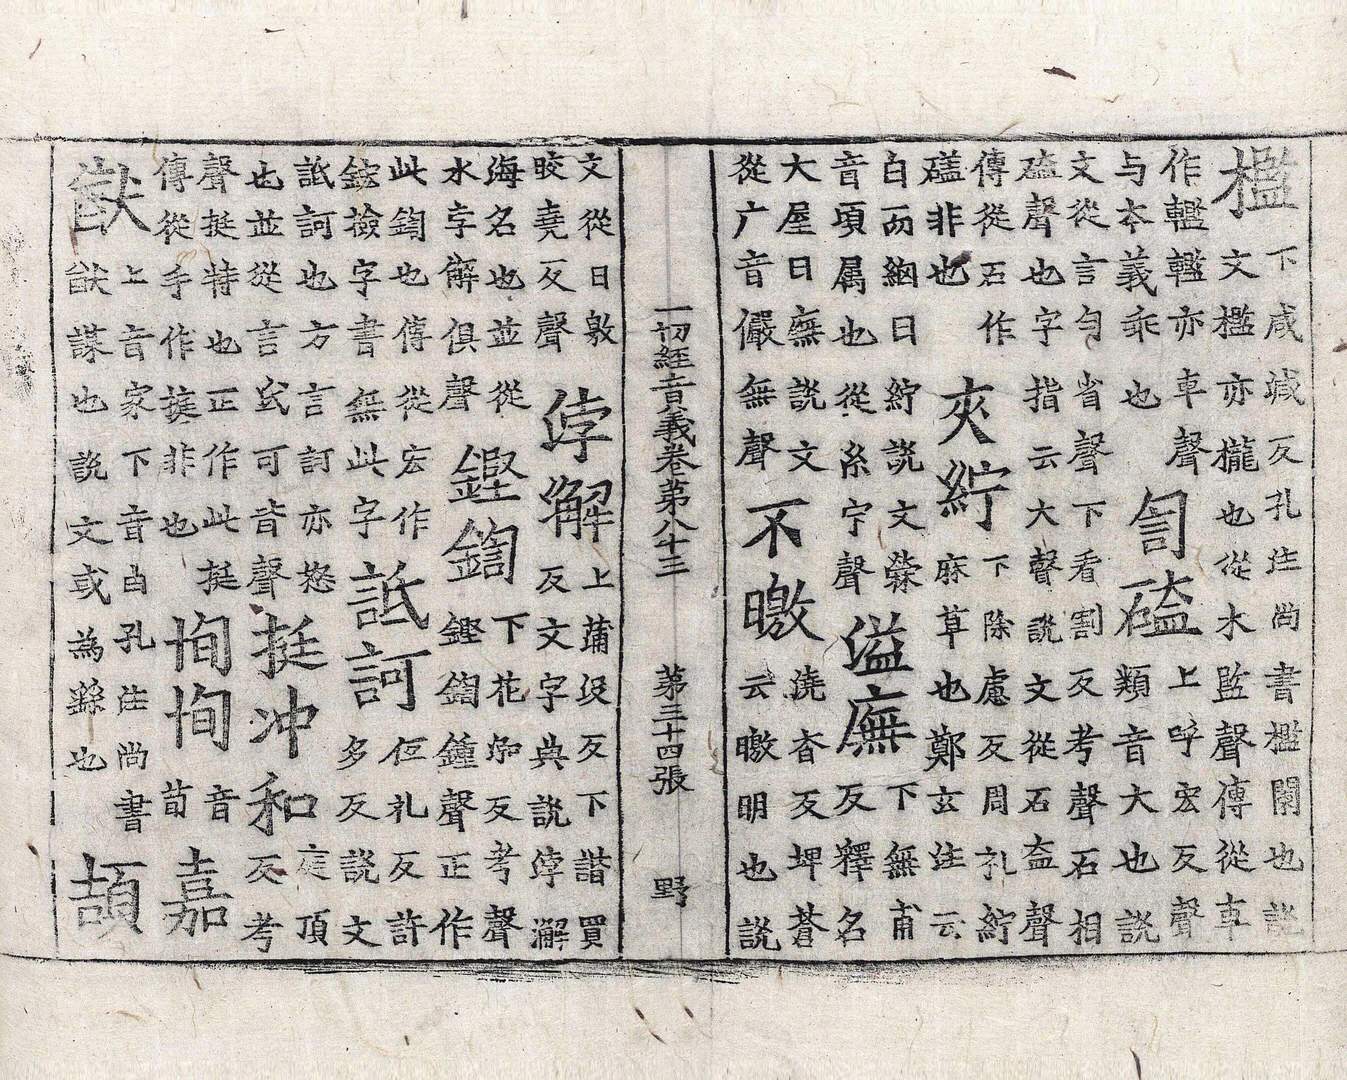 檻下咸減反孔注尚書檻闌也說
文檻亦櫳也從木監聲傳從車
作轞轞亦車聲
与本義乖也
訇磕上呼宏反聲
類音大也說
文從言勻省聲下看割反考聲石相
磕聲也字指云大聲說文從石盍聲
傳從石作
礚非也
夾紵下除慮反周礼紵
麻草也鄭玄注云
白而細曰紵說文檾
音頃属也從糸宁聲
溢廡下無甫
反釋名
大屋曰廡說文
從广音儼無聲
不曒澆杳反埤蒼
云曒明也說
一切經音義卷第八十三 第三十四張 野
文從日敫
皎堯反聲
侼解上蒲没反下諧買
反文字典說侼澥
海名也並從
水字解俱聲
鏗鍧下花反考聲
鏗鍧鍾聲正作
此鍧也傳從宏作
鋐撿字書無此字
詆訶低礼反許
多反說文
詆訶也方言訶亦怒
也並從言氐可皆聲
挺冲和庭頂
反考
聲挺特也正作此挺
傳從手作非也
恂恂音
荀
嘉
猷上音家下音由孔注尚書
猷謀也說文或為繇也
頡